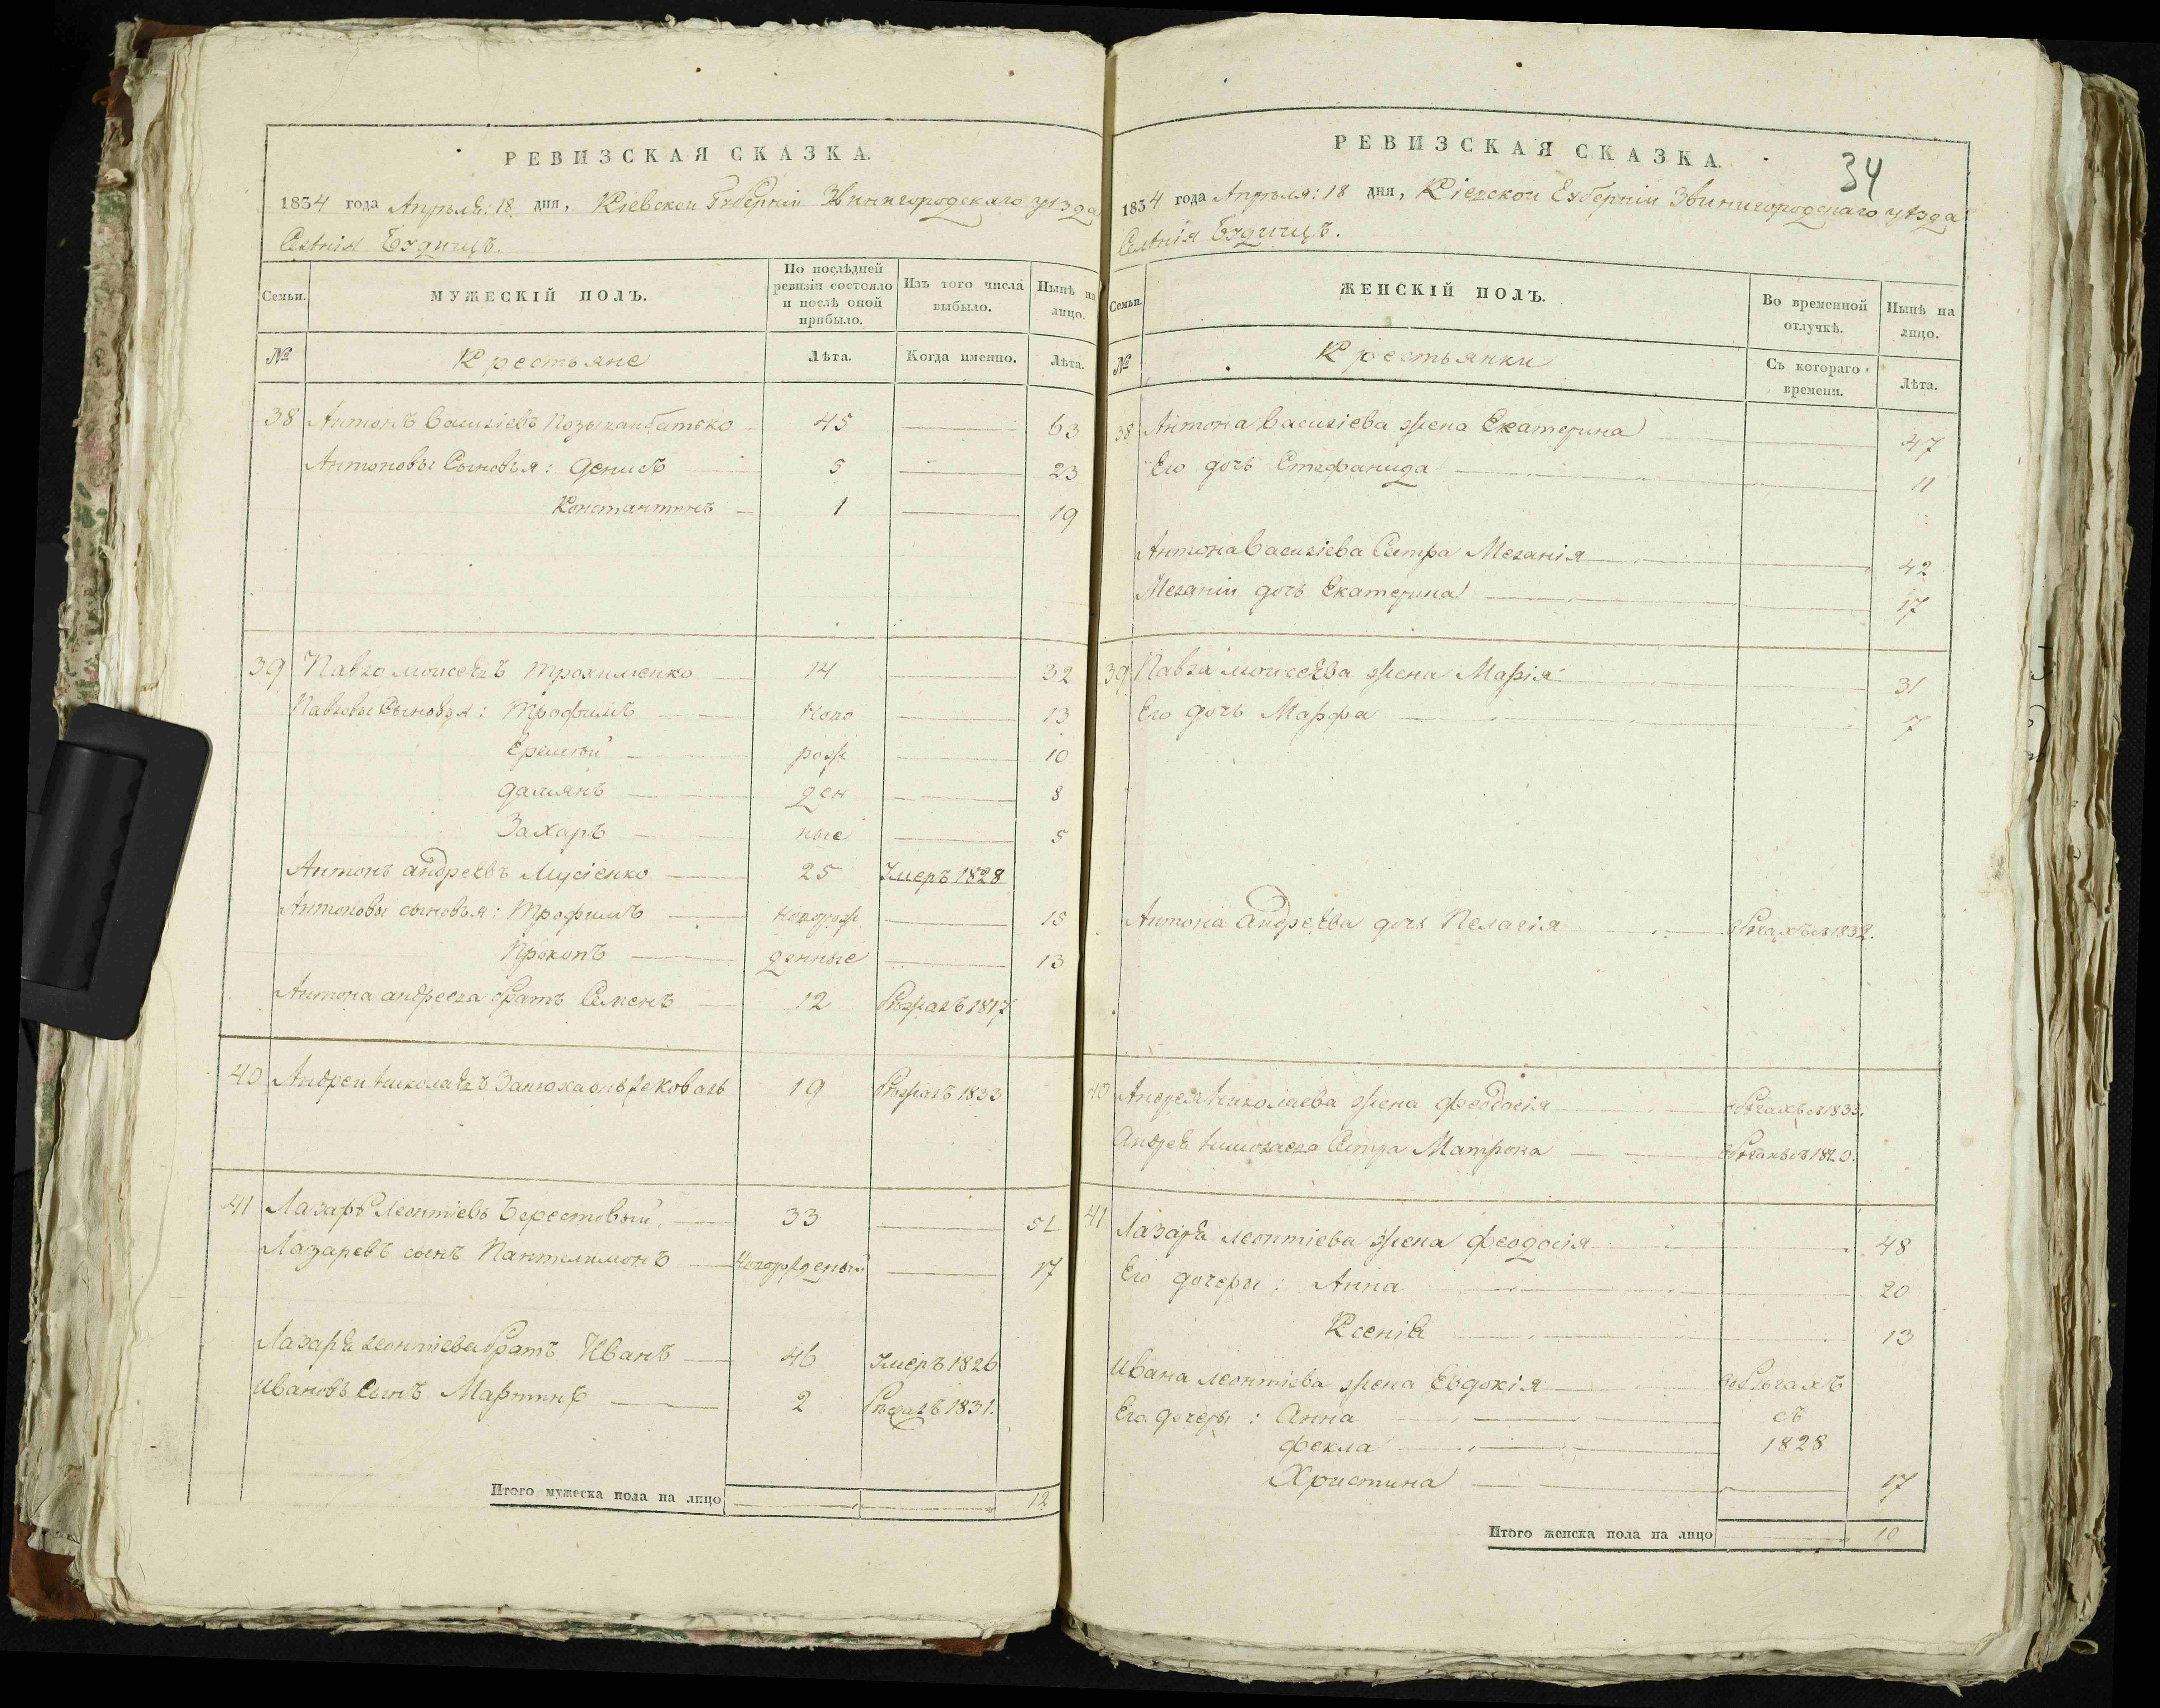 РЕВИЗСКАЯ СКАЗКА.
1834 года Апреля: 18 дня, Кіевской Губерніи Звинигородскаго уѣзда
Селѣнія Будищъ.
Семьи.
МУЖЕСКІЙ ПОЛЪ.
По послѣдней ревизіи состояло и послѣ оной прибыло.
Изъ того числа выбыло.
Нынѣ на лицо.
№
Крестьяне
Лѣта.
Когда именно.
Лѣта.
38 Антонъ Василіевъ 45 63
Антоновы Сыновья: Денисъ 5 23
Константинъ 1 19
39 Павло Моисеевъ Трохименко 14 32
Павловы Сыновья: Трофимъ ново 13
Еремѣй рож 10
Даміянъ ден 8
Захаръ ные 5
Антонъ Андреевъ Мусіенко 25 Умеръ 1828
Антоновы сыновья: Трофимъ новорож 15
Прокопъ денные 13
Антона Андреева братъ Семенъ 12 Бѣжалъ 1817
40 Андрей Николаевъ 19 Бѣжалъ 1833
41 Лазарь Леонтіевъ Берестовый 33 51
Лазаревъ сынъ Пантелимонъ новорожденый 17
Лазаря Леонтіева братъ Иванъ 46 Умеръ 1826
Ивановъ Сынъ Мартинъ 2 Бѣжалъ 1831.
Итого мужеска пола на лицо 12
РЕВИЗСКАЯ СКАЗКА.
34
1834 года Апрѣля: 18 дня, Кіевской Губерніи Звинигородскаго уѣзда
Селѣнія Будищъ.
Семьи.
ЖЕНСКІЙ ПОЛЪ.
Во временной отлучкѣ.
Нынѣ на лицо.
№
Крестьянки
Съ котораго времени.
Лѣта.
38 Антона Василіева жена Екатерина 47
Его дочь Стефанида 11
Антона Василіева Сестра Меланія 42
Меланіи дочь Екатерина 17
39 Павла Моисеева жена Марія 31
Его дочь Марфа 7
Антона Андреева дочь Пелагія въ бѣгахъ съ 1832.
40 Андрея Николаева жена Феодосія въ бѣгахъ съ 1833.
Андрея Николаева Сестра Матрона въ бѣгахъ съ
41 Лазаря Леонтіева жена Феодосія 48
Его дочеры: Анна 20
Ксенія 13
Ивана Леонтіева жена Евдокія въ бѣгахъ
Его дочеры: Анна съ
Фекла 1828
Христина 17
Итого женска пола на лицо 10